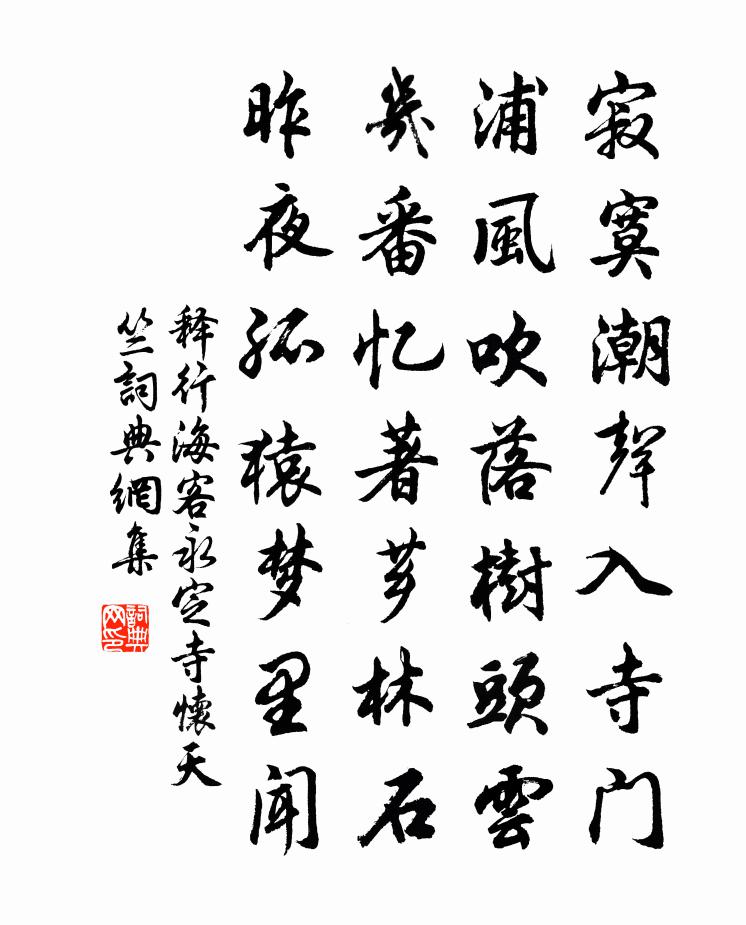 寂寞潮聲入寺门
浦風吹落樹頭雲
幾番忆著萝林石
昨夜孤猿梦里闻
释行海客永定寺懷天
竺詞典網集
詞典
网印